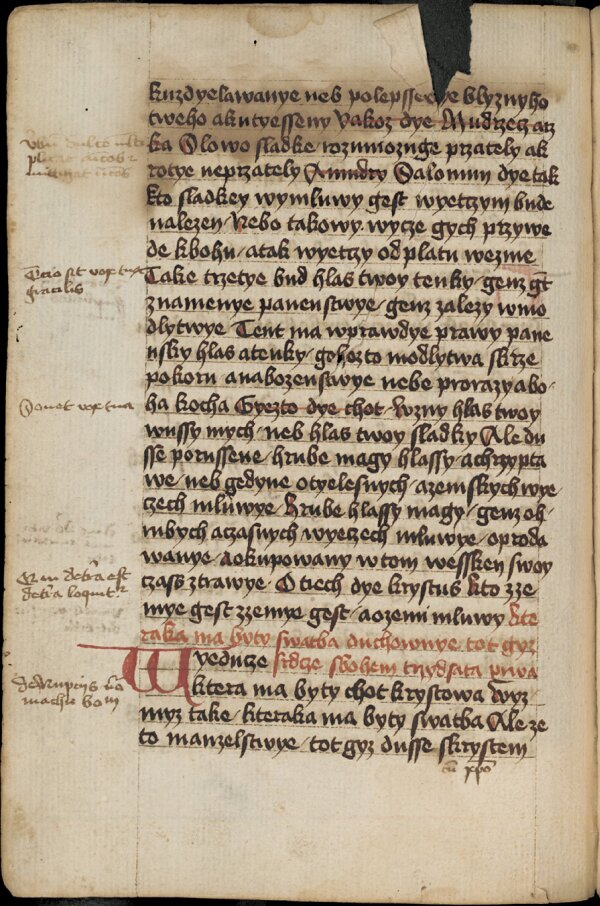 kuzdyelawanye neb polepssenye blyznyho
tweho a kutyesseny yakoz dye Mudrzecz arz
ka Slowo sladke rozumnozuge przately a k
rotye neprzately A mudry Salomun dye tak
kto sladkey wymluwy gest wyetczym bude
nalezen / Nebo takowy wycze gych przywe
de k bohu / a tak wyetczy odplatu wezme
Tercio sit vox tua gracilis
Take trzetye bud hlas twoy tenky / genz gt
znamenye panenstwye / genz zalezy w mo
dlytwye / Tent ma wprawdye prawy pane
nsky hlas a tenky / gehozto modlytwa skrze
pokoru a nabozenstwye nebe prorazy a bo
Sonet vox tua
ha kocha Gyezto dye chot / Wzny hlas twoy
w ussy mych / neb hlas twoy sladky Ale du
sse porussene / hrube magy hlassy / a chrzypta
we / neb gedyne o tyelesnych / a zemskych wye
czech mluwye / Hrube hlassy magy / genz o h
nıbych a czasnych wyeczech mluwye / o proda
wanye / a o kupowany w tom wessken swoy
Qui de terra est de terra loquitur
czass ztrawye / O tiech dye krystus kto z ze
mye gest z zemye gest / a o zemi mluwy kte
raka ma byty swatba duchownye totgyz
Wyeducze srdcze s bohem trzydsata prwa
ktera ma byty chot krystowa wyz
myz take / kteraka ma byty swatba Ale ze
to manzelstwye / totgyz dusse s krystem
cum xpo